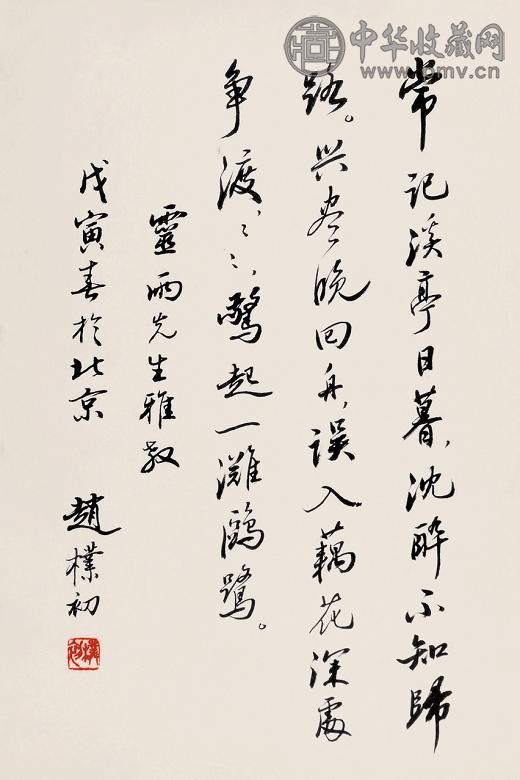 常记溪亭日暮，沈醉不知歸
路。兴尽晚回舟，误入藕花深處
争渡，〻〻，驚起一滩鷗鹭。
靈雨先生雅教
戊寅春於北京
趙樸初
樸初
中华收藏网
www.omv.cn